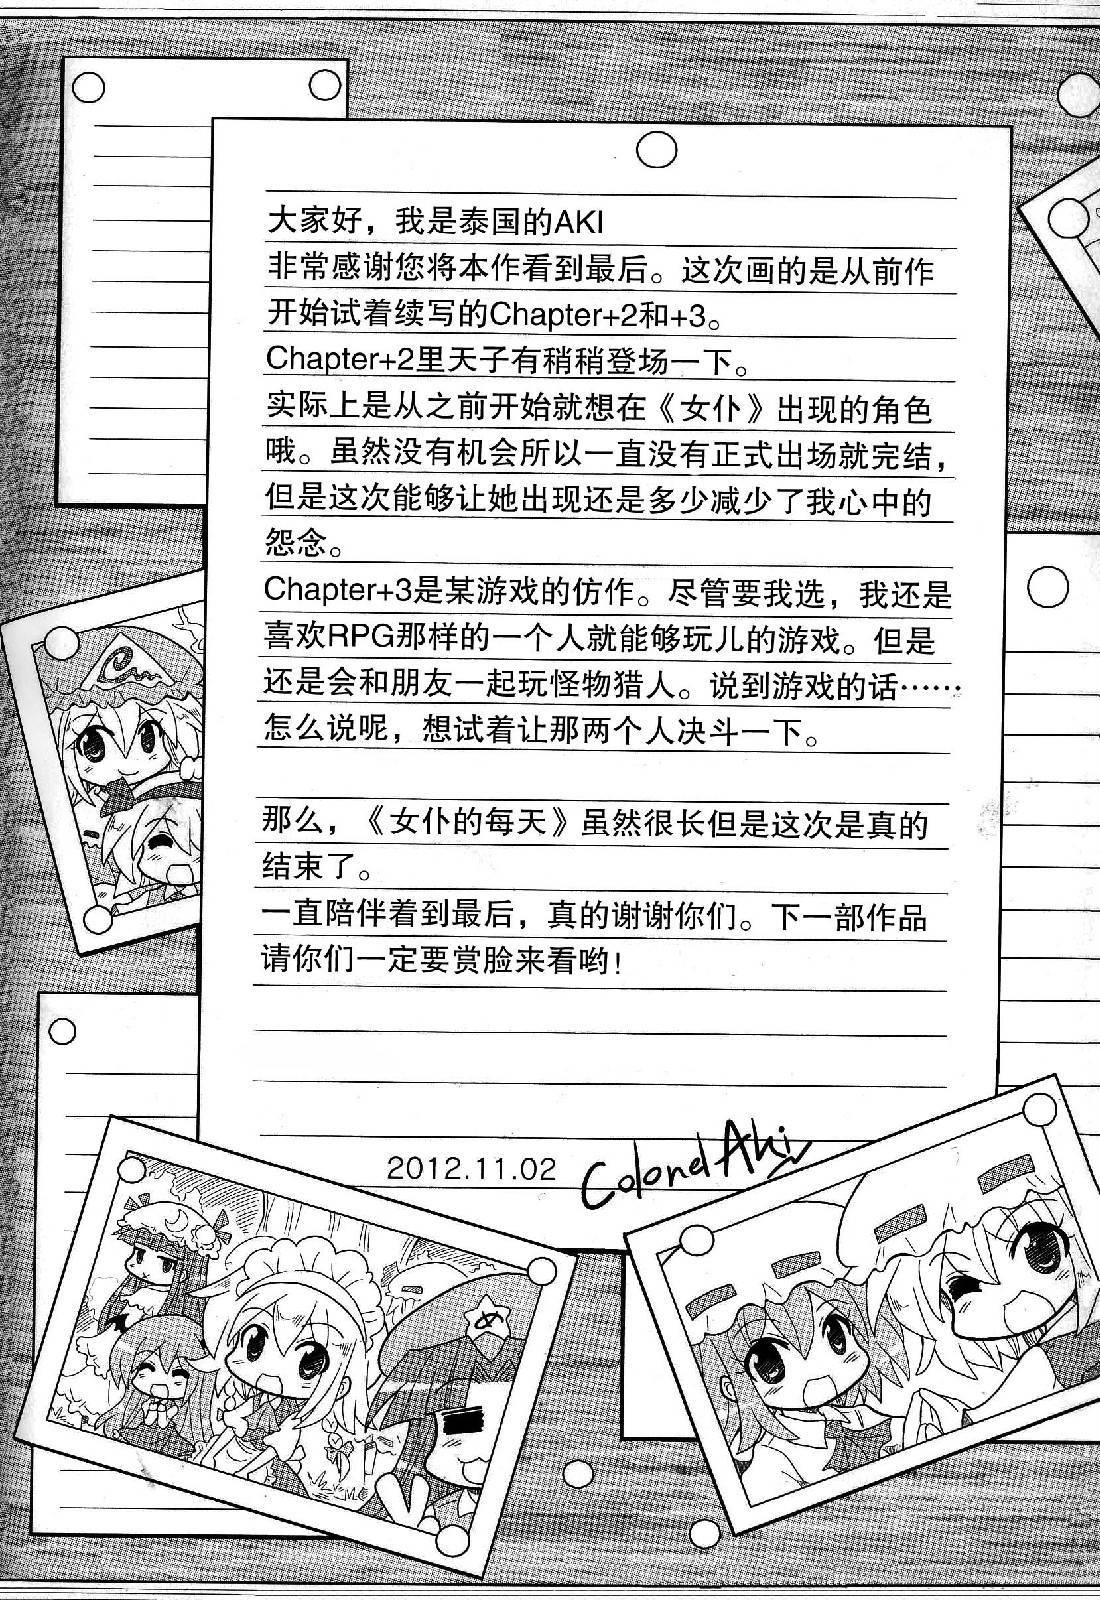 大家好，我是泰国的AKI
非常感谢您将本作看到最后。这次画的是从前作
开始试着续写的Chapter+2和+3。
Chapter+2里天子有稍稍登场一下。
实际上是从之前开始就想在《女仆》出现的角色
哦。虽然没有机会所以一直没有正式出场就完结，
但是这次能够让她出现还是多少减少了我心中的
怨念。
Chapter+3是某游戏的仿作。尽管要我选，我还是
喜欢RPG那样的一个人就能够玩儿的游戏。但是
还是会和朋友一起玩怪物猎人。说到游戏的话……
怎么说呢，想试着让那两个人决斗一下。
那么，《女仆的每天》虽然很长但是这次是真的
结束了。
一直陪伴着到最后，真的谢谢你们。下一部作品
请你们一定要赏脸来看哟！
2012.11.02
Colonel Aki